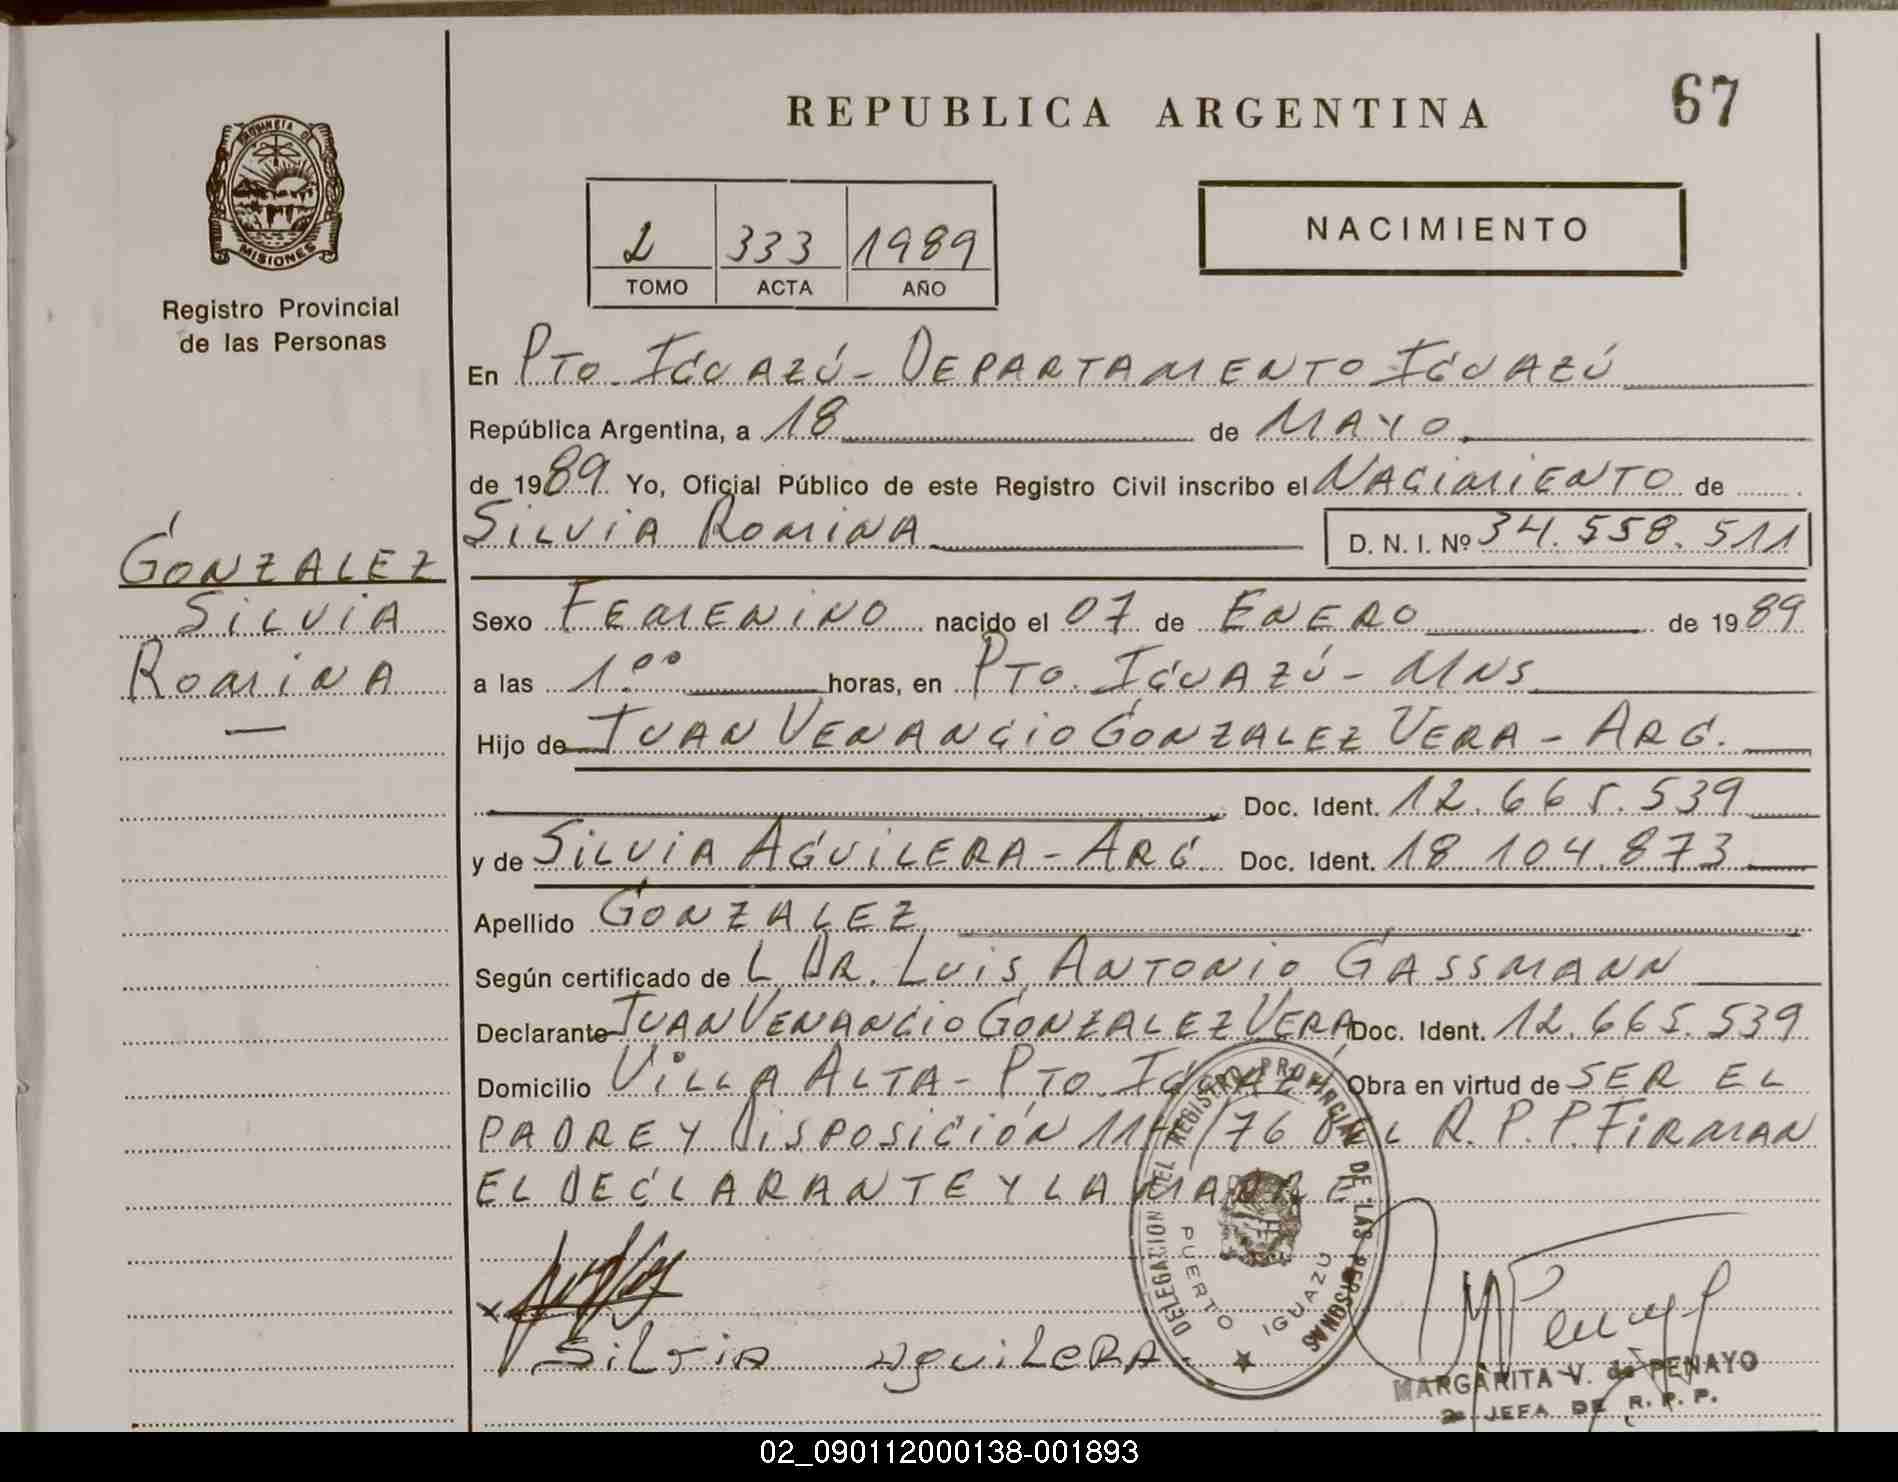 REPUBLICA ARGENTINA
67
PROVINCIA DE
MISIONES
Registro Provincial
de las Personas
2 333 1989
TOMO ACTA AÑO
NACIMIENTO
En PTO. IGUAZÚ - DEPARTAMENTO IGUAZÚ
República Argentina, a 18 de MAYO
de 1989 Yo, Oficial Público de este Registro Civil inscribo el NACIMIENTO de
SILVIA ROMINA D. N. I. Nº 34.558.511
GONZALEZ
SILVIA
ROMINA
Sexo FEMENINO nacido el 07 de ENERO de 1989
a las 1.00 horas, en PTO. IGUAZÚ - MNS
Hijo de JUAN VENANCIO GONZALEZ VERA - ARG.
Doc. Ident. 12.665.539
y de SILVIA AGUILERA - ARG. Doc. Ident. 18.104.873
Apellido GONZALEZ
Según certificado de L DR. LUIS ANTONIO GASSMANN
Declarante JUAN VENANCIO GONZALEZ VERA Doc. Ident. 12.665.539
Domicilio VILLA ALTA - PTO. IGUAZÚ Obra en virtud de SER EL
PADRE Y DISPOSICIÓN /76 DEL R.P.P. FIRMAN
EL DECLARANTE Y LA MADRE
DELEGACION DEL REGISTRO PROVINCIAL DE LAS PERSONAS
PUERTO IGUAZU
x
SILVIA AGUILERA
MPenayo
MARGARITA V. de PENAYO
JEFA DE R. P. P.
02_090112000138-001893